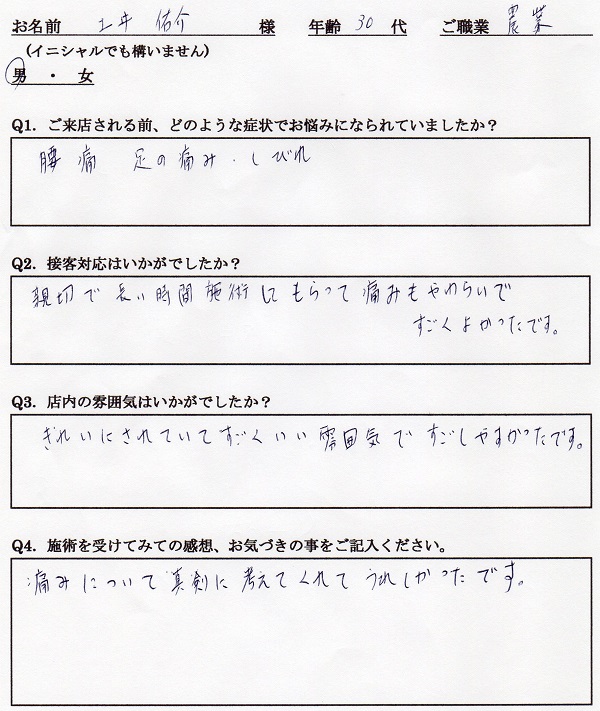 お名前 土井 佑介 様 年齢 30 代 ご職業 農業
(イニシャルでも構いません)
男 ・ 女
Q1. ご来店される前、どのような症状でお悩みになられていましたか？
腰痛 足の痛み・しびれ
Q2. 接客対応はいかがでしたか？
親切で長い時間施術してもらって痛みもやわらいで
すごくよかったです。
Q3. 店内の雰囲気はいかがでしたか？
きれいにされていてすごくいい雰囲気ですごしやすかったです。
Q4. 施術を受けてみての感想、お気づきの事をご記入ください。
痛みについて真剣に考えてくれてうれしかったです。